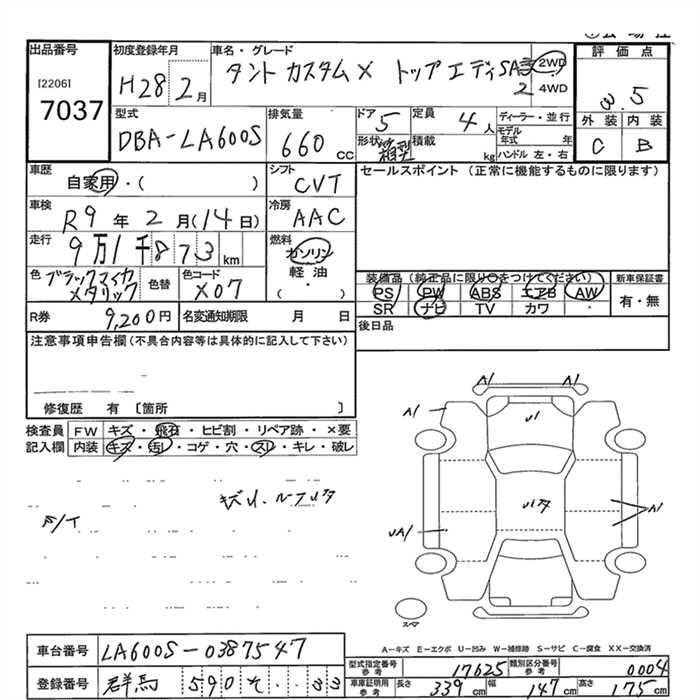 出品番号
[2206]
7037
初度登録年月
H28 2月
車名・グレード
タント カスタム X トップエディSAⅡ
2WD
2 4WD
評価点
3.5
外装 内装
C B
型式
DBA-LA600S
排気量
660 CC
ドア
5
形状
箱型
定員
4人
積載
kg
ディーラー・並行
モデル年式 年
ハンドル 左・右
車歴
自家用・( )
シフト
CVT
セールスポイント (正常に機能するものに限ります)
車検
R9年2月(14日)
冷房
AAC
走行
9万1千873km
燃料
ガソリン
軽油
・
( )
色
ブラックマイカメタリック
色替
色コード
X07
装備品(純正品に限り○をつけてください)
PS PW ABS エアB AW
SR ナビ TV カワ ・
新車保証書
有・無
R券
9,200円
名変通知期限 月 日
後日品
注意事項申告欄(不具合内容等は具体的に記入して下さい)
修復歴 有 〔箇所 〕
検査員記入欄
FW キズ・飛石・ヒビ割・リペア跡・×要
内装 キズ・汚レ・コゲ・穴・スレ・キレ・破レ
A1 A1
A1
U1
A1
UA1
スペア
A-キズ E-エクボ U-凹み W-補修跡 S-サビ C-腐食 XX-交換済
車台番号
LA600S-0387547
登録番号
群馬 590 そ ・・33
型式指定番号 参考
17625
類別区分番号 参考
0004
車庫証明用 参考
長さ 339cm 幅 147cm 高さ 175cm